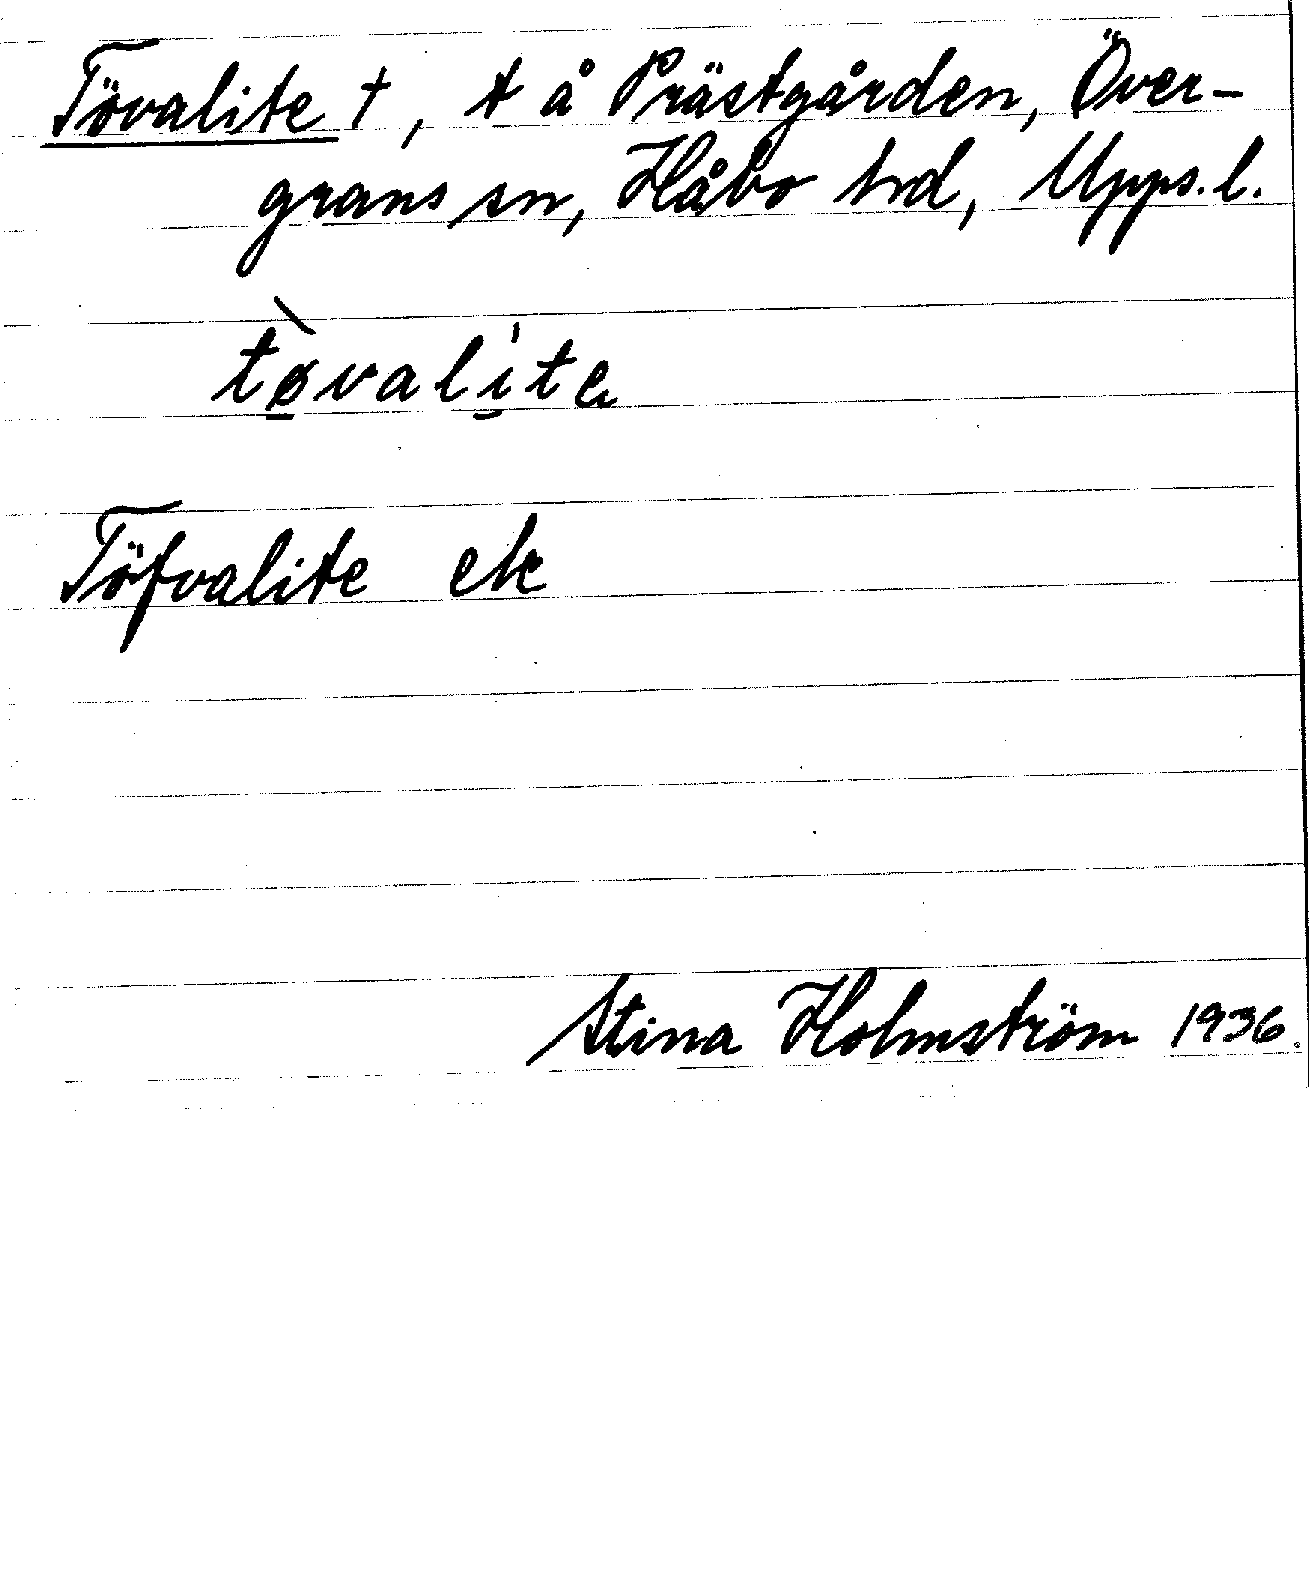 Tövalite †, t å Prästgården, Över-
grans sn, Håbo hd, Upps. l.
tø̀valite
Töfvalite ek
Stina Holmström 1936.